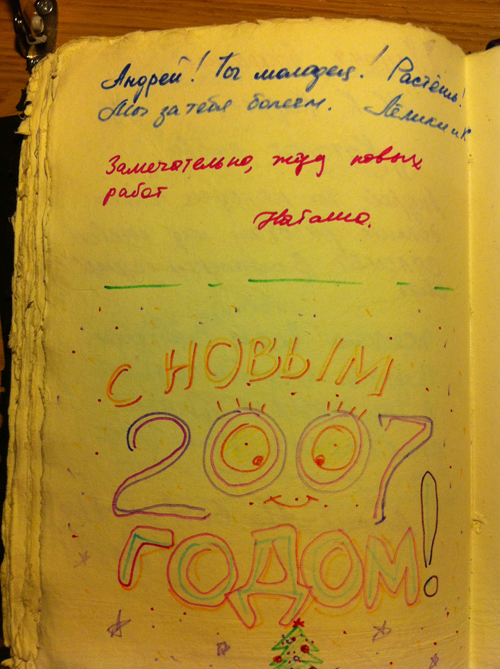 Андрей! Ты молодец! Растёшь!
Мы за тебя болеем.
Замечательно, жду новых
работ
Наташа.
С НОВЫМ
2007
ГОДОМ!